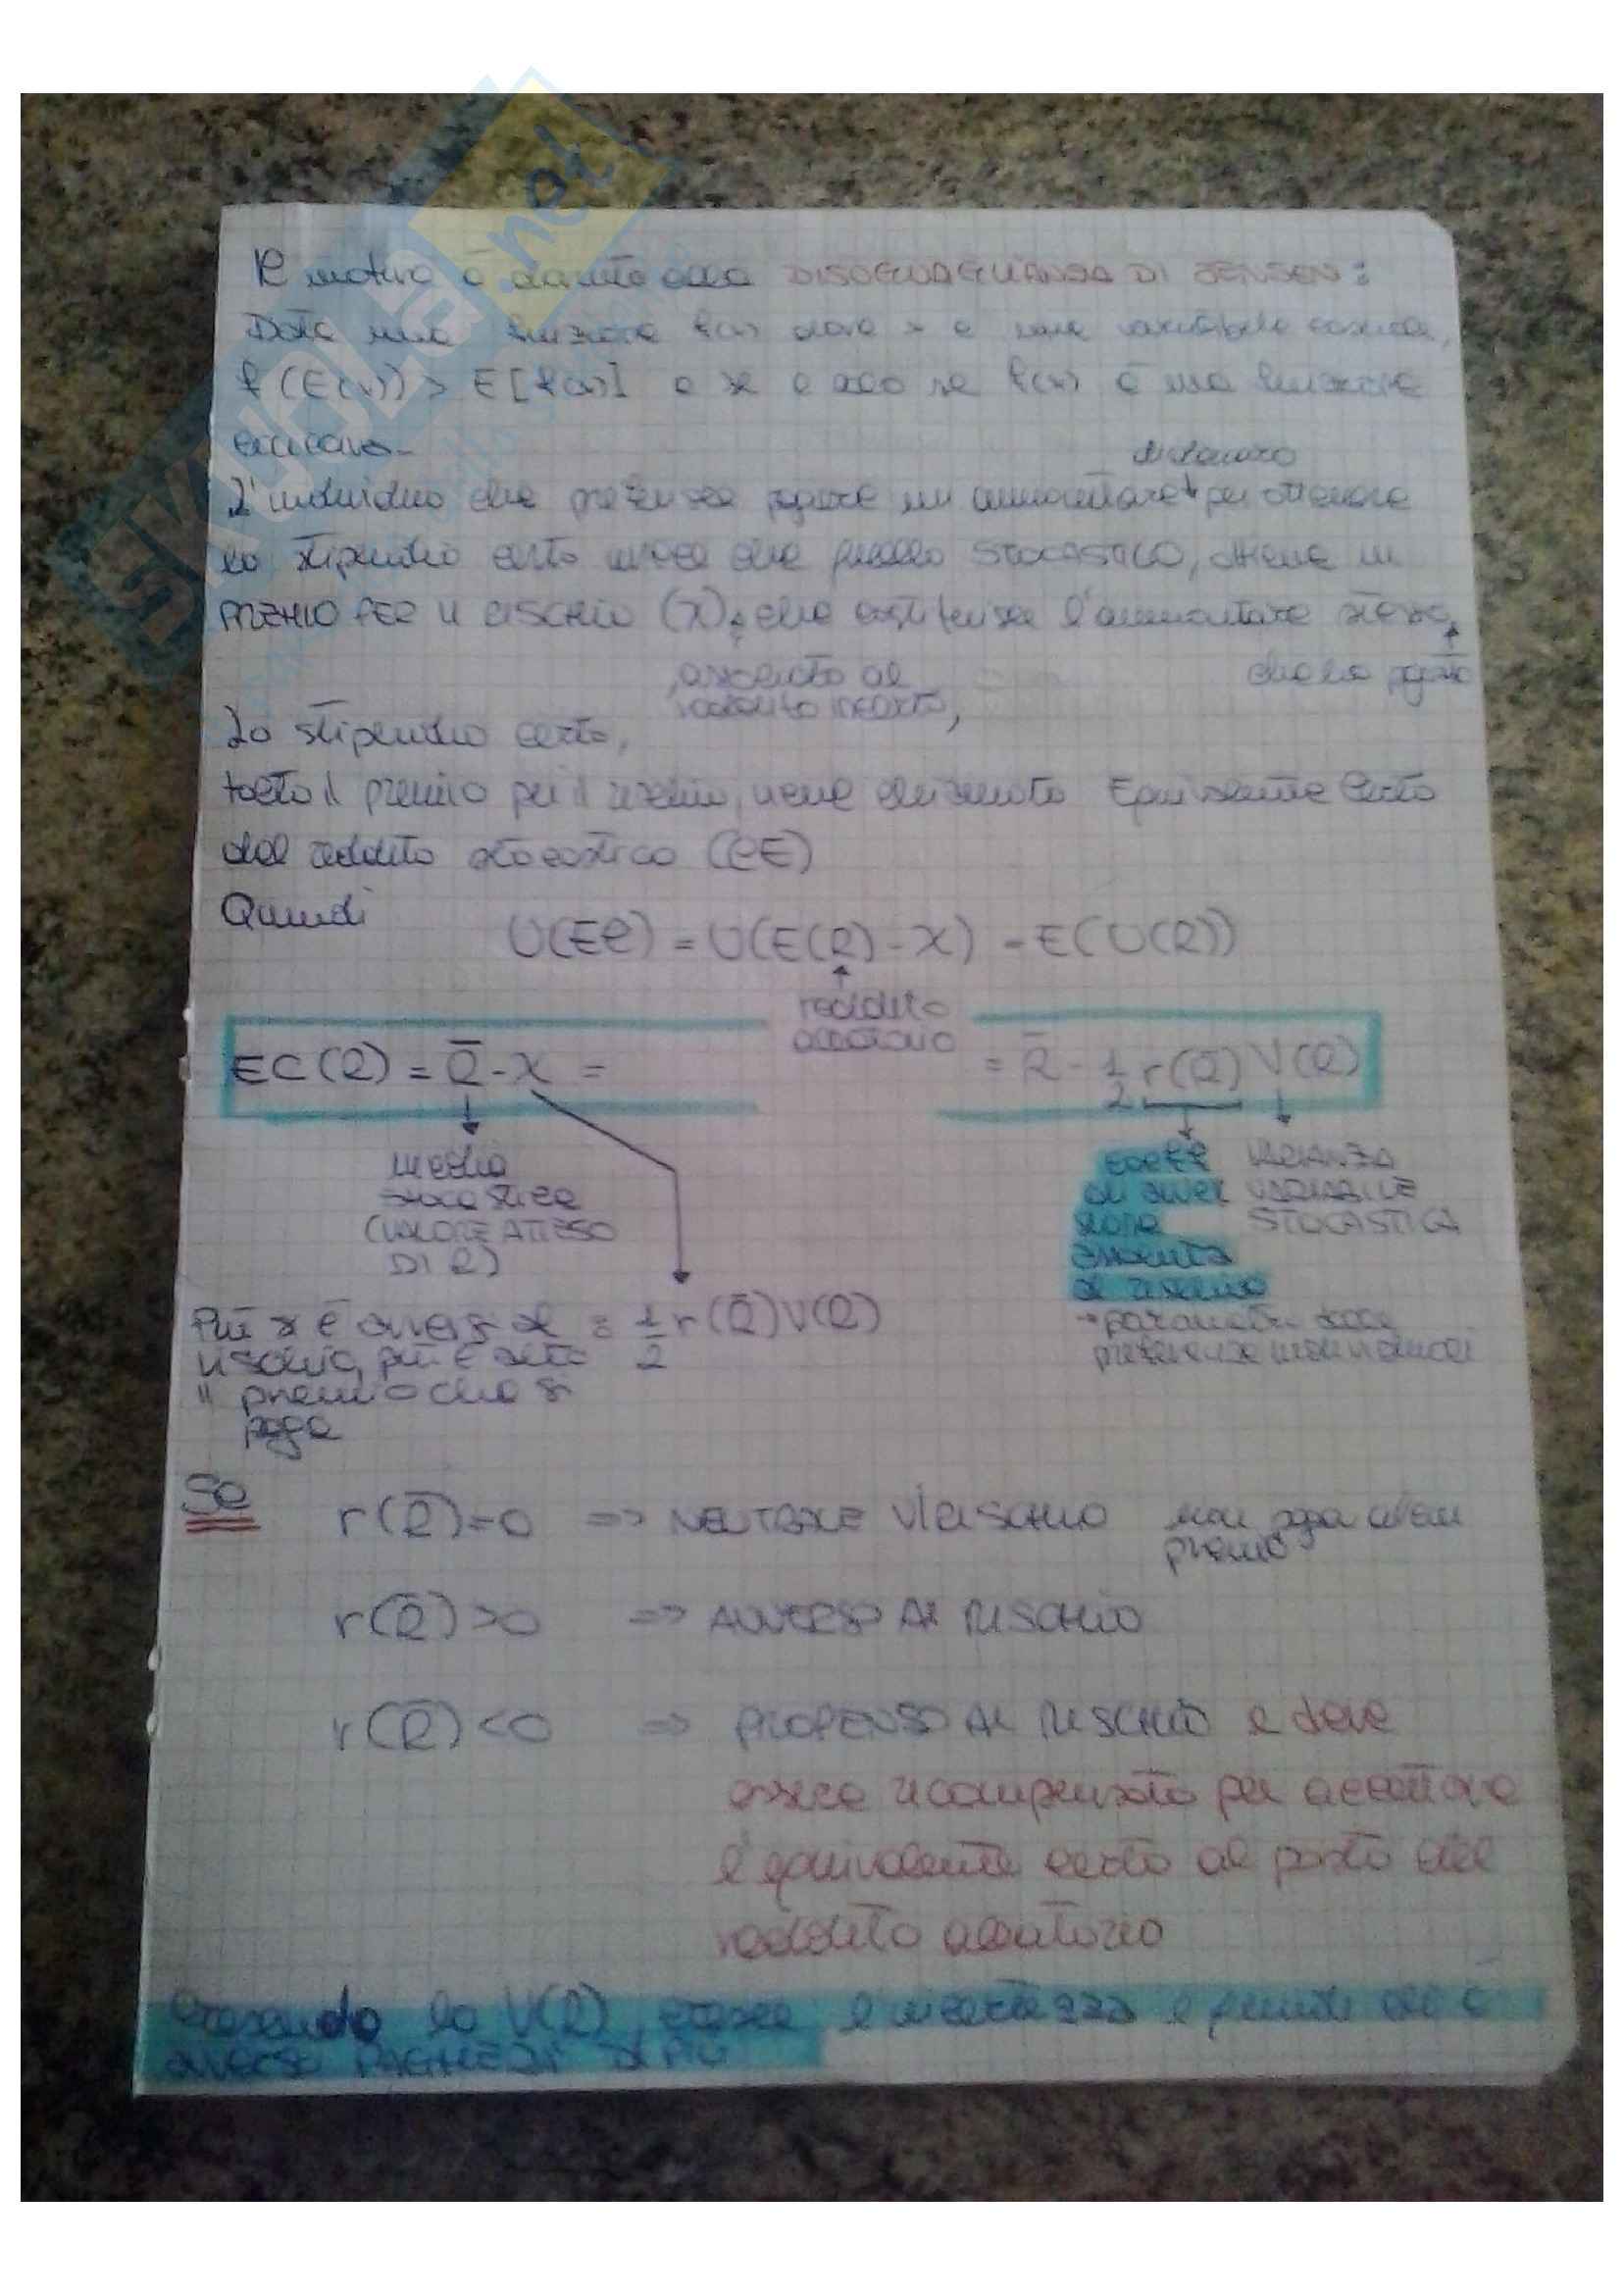 SKUOLa.net
Il motivo è dovuto alla DISUGUAGLIANZA DI JENSEN:
Data una funzione f(x) dove x è una variabile casuale,
f(E(x)) > E[f(x)] e se e solo se f(x) è una funzione
di denaro
L'individuo che preferisce pagare un ammontare per ottenere
lo stipendio certo invece che quello STOCASTICO, ottiene un
PREMIO PER IL RISCHIO (X), che costituisce l'ammontare stesso
associato al che ha pagato
reddito incerto,
Lo stipendio certo,
tolto il premio per il rischio, viene Equivalente Certo
del reddito stocastico (CE)
Quindi
U(EC) = U(E(R) - X) = E(U(R))
reddito
aleatorio
EC(R) = R̄ - X = = R̄ - 1/2 r(R̄) V(R)
media
stocastica
(VALORE ATTESO
DI R)
COEFF VARIANZA
DI AVVER VARIABILE
SIONE STOCASTICA
ASSOLUTA
AL RISCHIO
→ parametri delle
preferenze individuali
Più si è avversi al = 1/2 r(R̄)V(R)
rischio, più è alto
il premio che si
paga
Se
r(R̄)=0 => NEUTRALE V/RISCHIO non paga alcun
premio
r(R̄)>0 => AVVERSO AL RISCHIO
r(R̄)<0 => PROPENSO AL RISCHIO e deve
essere ricompensato per accettare
l'equivalente certo al posto del
reddito aleatorio
Crescendo la V(R), cresce l'incertezza e quindi chi è
avverso PAGHERÀ DI PIÙ